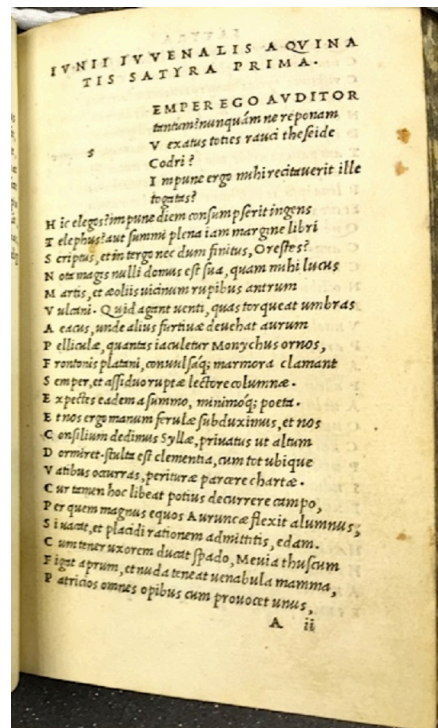 IVNII IVVENALIS AQVINA
TIS SATYRA PRIMA.
EMPER EGO AVDITOR
tantum? nunquám ne reponam
s
V exatus toties rauci theseide
Codri?
I mpune ergo mihi recitauerit ille
togatas?
H ic elegos? impune diem consumpserit ingens
T elephus? aut summi plena iam margine libri
S criptus, et in tergo nec dum finitus, Orestes?
N ota magis nulli domus est sua, quam mihi lucus
M artis, et æoliis uicinum rupibus antrum
V ulcani. Quid agant uenti, quas torqueat umbras
A eacus, unde alius furtiuæ deuehat aurum
P elliculæ, quantas iaculetur Monychus ornos,
F rontonis platani, conuulsáq; marmora clamant
S emper, et assiduo ruptæ lectore columnæ.
E xpectes eadem a summo, minimóq; poeta.
E t nos ergo manum ferulæ subduximus, et nos
C onsilium dedimus Syllæ, priuatus ut altum
D ormiret. stulta est clementia, cum tot ubique
V atibus occurras, perituræ parcere chartæ.
C ur tamen hoc libeat potius decurrere campo,
P er quem magnus equos Auruncæ flexit alumnus,
S i uacat, et placidi rationem admittitis, edam.
C um tener uxorem ducat spado, Meuia thuscum
F igat aprum, et nuda teneat uenabula mamma,
P atricios omnes opibus cum prouocet unus,
A ii